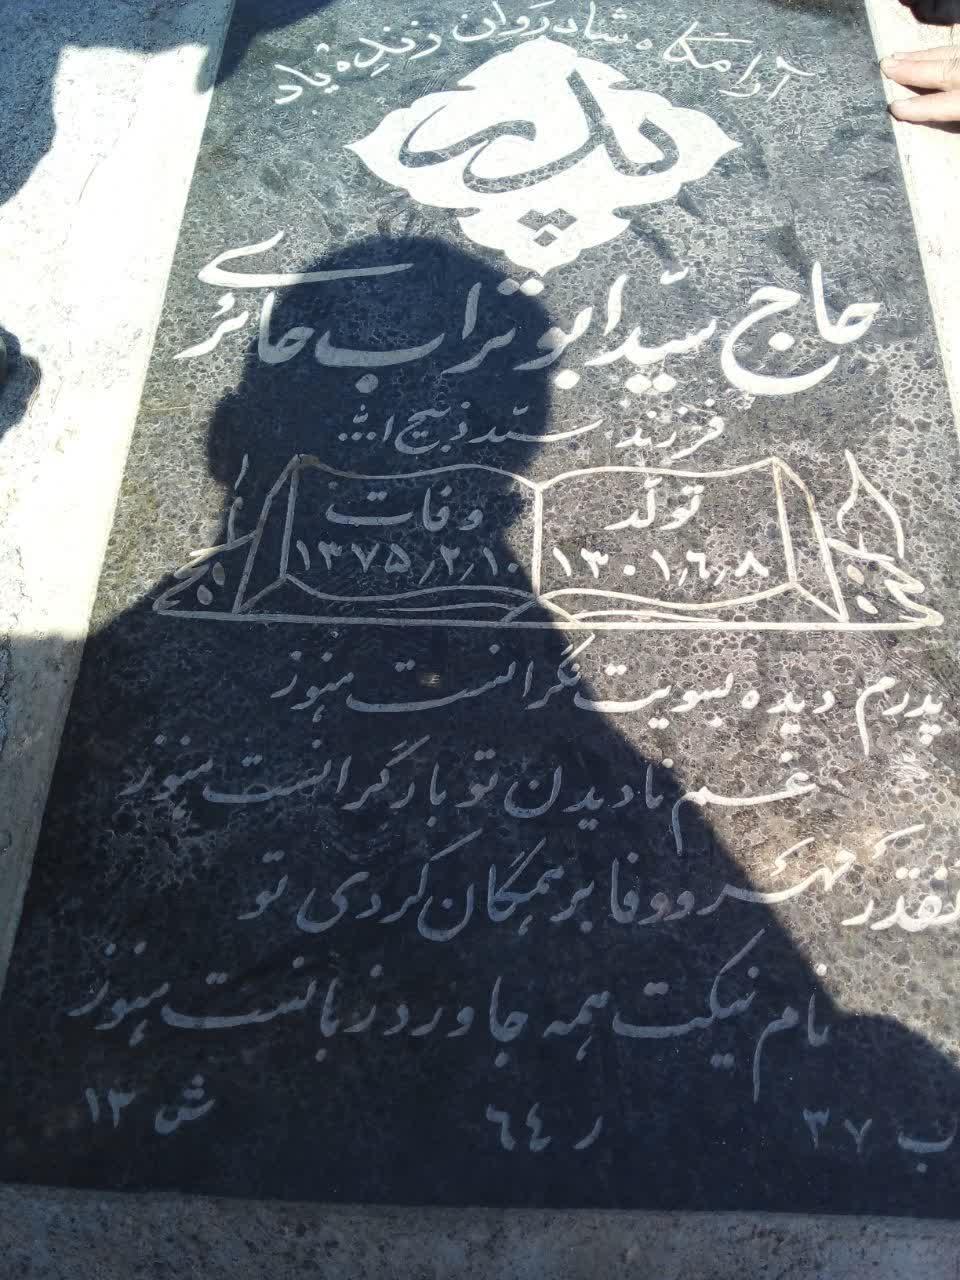 آرامگاه شادروان زنده یاد
پدر
حاج سیّد ابوتراب حائری
فرزند: سیّد ذبیح الله
تولّد
۱۳۰۱٫۶٫۸
وفات
۱۳۷۵٫۲٫۱۰
پدرم دیده بسویت نگرانست هنوز
غم نادیدن تو بار گرانست هنوز
نقدر مهر و وفا بر همگان کردی تو
نام نیکت همه جا ورد زبانست هنوز
ب ۳۷ ر ٦٤ ش ۱۳